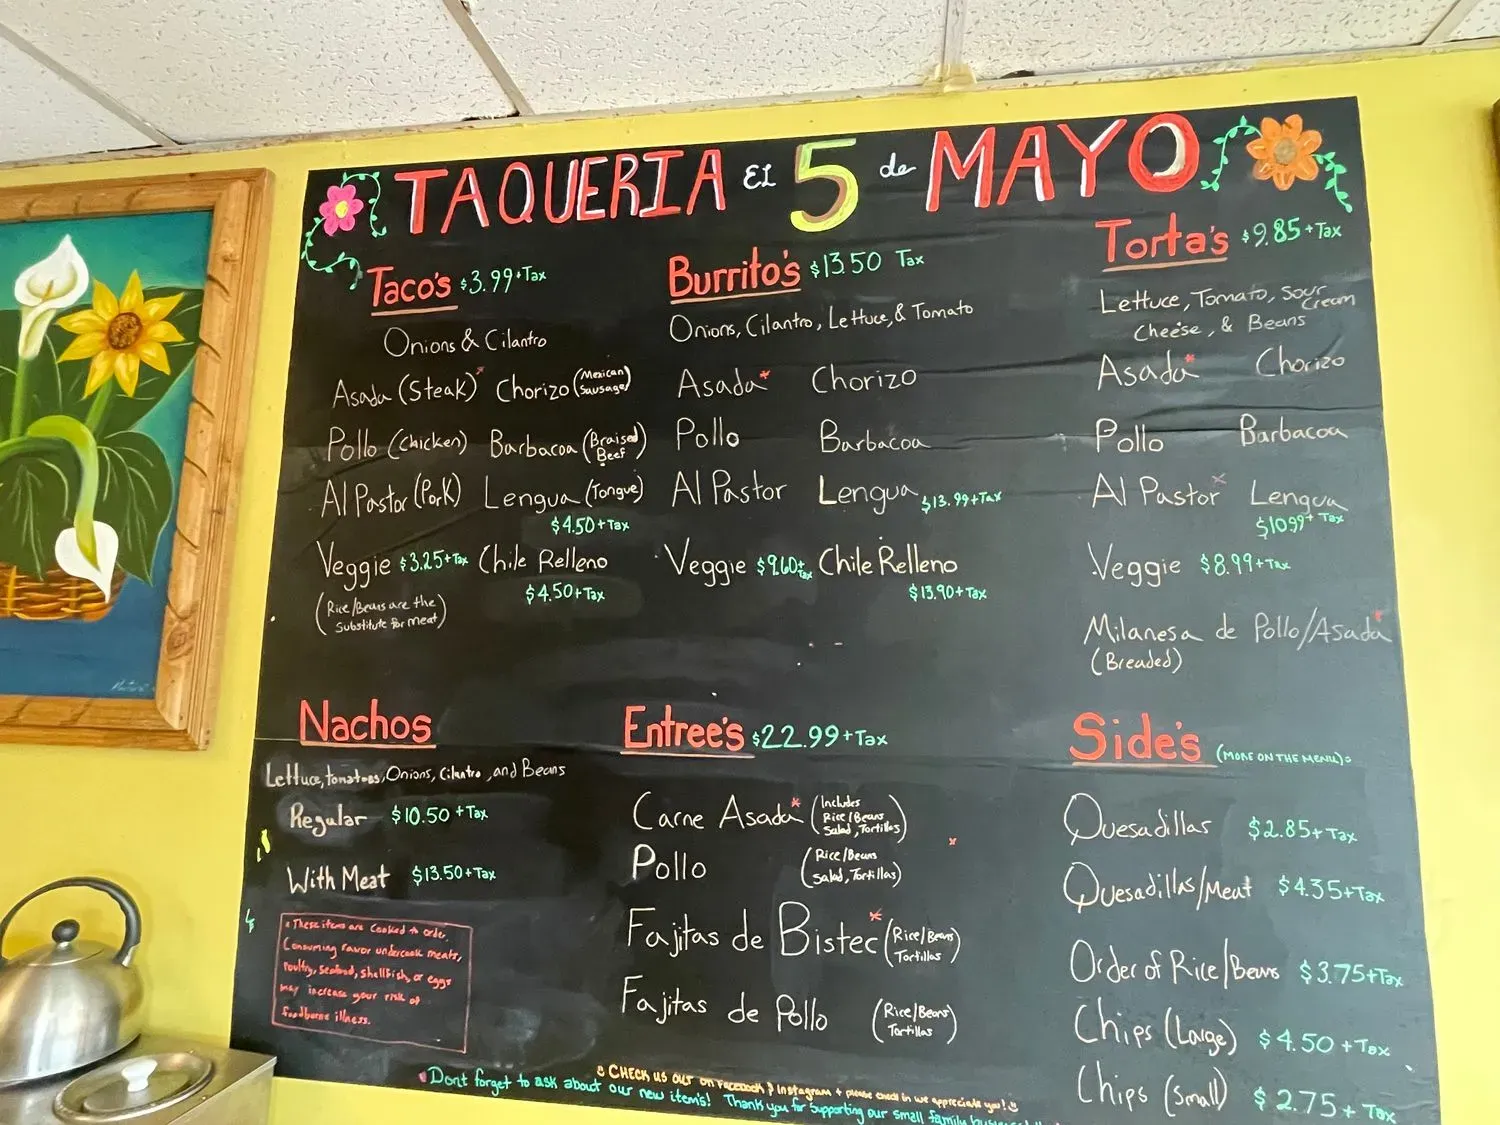 TAQUERIA EL 5 de MAYO
Taco's $3.99+Tax
Onions & Cilantro
Asada (Steak)* Chorizo (Mexican Sausage)
Pollo (chicken) Barbacoa (Braised Beef)
Al Pastor (Pork) Lengua (Tongue)
$4.50+Tax
Veggie $3.25+Tax Chile Relleno
$4.50+Tax
(Rice/Beans are the
Substitute for meat)
Burrito's $13.50 Tax
Onions, Cilantro, Lettuce, & Tomato
Asada* Chorizo
Pollo Barbacoa
Al Pastor Lengua $13.99+Tax
Veggie $9.60+Tax Chile Relleno
$13.90+Tax
Torta's $9.85+Tax
Lettuce, Tomato, Sour Cream
Cheese, & Beans
Asada* Chorizo
Pollo Barbacoa
Al Pastor* Lengua
$10.99+Tax
Veggie $8.99+Tax
Milanesa de Pollo/Asada*
(Breaded)
Nachos
Lettuce, tomatoes, Onions, Cilantro, and Beans
Regular $10.50+Tax
With Meat $13.50+Tax
* These items are Cooked to order.
Consuming raw or undercook meats,
Poultry, seafood, shellfish, or eggs
may increase your risk of
foodborne illness.
Entree's $22.99+Tax
Carne Asada* (Includes
Rice/Beans
Salad, Tortillas)
Pollo (Rice/Beans
Salad, Tortillas)
Fajitas de Bistec* (Rice/Beans)
Tortillas)
Fajitas de Pollo (Rice/Beans)
Tortillas)
Side's (MORE ON THE MENU):
Quesadillas $2.85+Tax
Quesadillas/Meat $4.35+Tax
Order of Rice/Beans $3.75+Tax
Chips (Large) $4.50+Tax
Chips (Small) $2.75+Tax
CHECK US OUT ON Facebook & Instagram + please check in we appreciate you!
Dont forget to ask about our new item's! Thank you for supporting our small family business!!